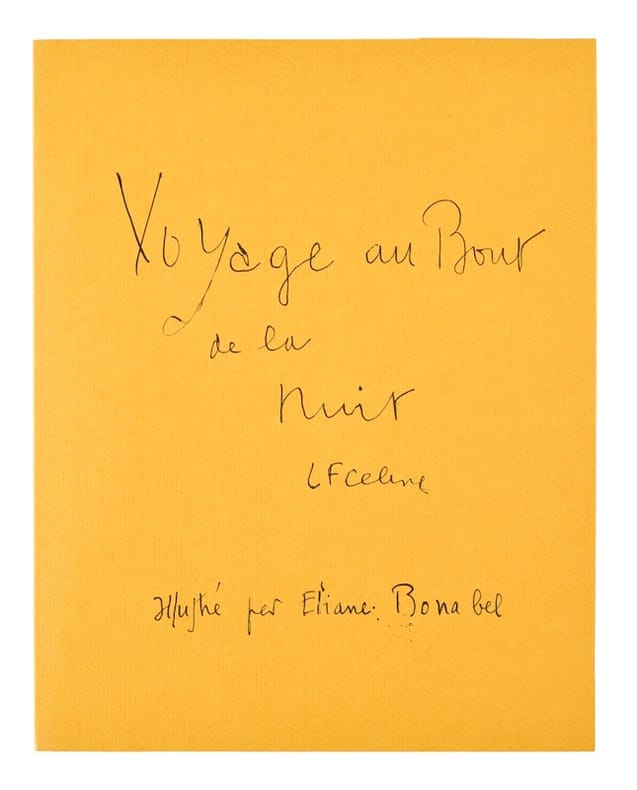 Voyage au Bout
de la
nuit
LFCeline
Illustré par Eliane Bonabel